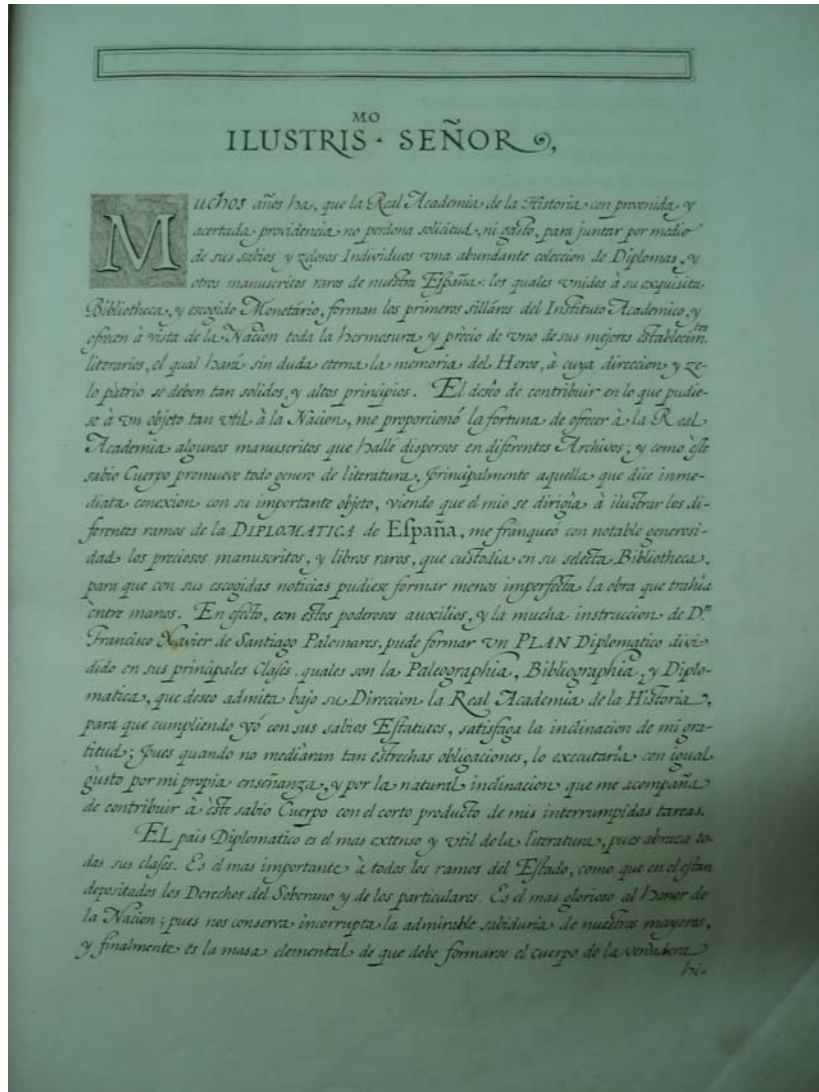 MO
ILUSTRIS. SEÑOR,
MUCHOS años ha, que la Real Academia de la Historia con provenida y
acertada providencia no perdona solicitud, ni gasto, para juntar por medio
de sus sabios y zelosos Individuos vna abundante coleccion de Diplomas, y
otros manuscritos raros de nuestra España: los quales vnidos à su exquisita
Bibliotheca, y escogido Monetário, forman los primeros silláres del Instituto Academico, y
ofrecen à vista de la Nacion toda la hermosura y précio de vno de sus mejores establecim.tos
literarios, el qual hará sin duda eterna la memoria del Heroe, à cuya direccion y ze-
lo pàtrio se deben tan solidos, y altos principios. El deséo de contribuir en lo que pudie-
se à vn objeto tan vtil à la Nacion, me proporcionó la fortuna de ofrecer à la Real
Academia algunos manuscritos que hallé dispersos en diferentes Archivos; y como éste
sabio Cuerpo promueve todo genero de literatura, principalmente aquella que dice inme-
diata conexion con su importante objeto, viendo que el mio se dirigìa à ilustrar los di-
ferentes ramos de la DIPLOMATICA de España, me franqueó con notable generosi-
dad los preciosos manuscritos, y libros raros, que custodia en su selecta Bibliotheca,
para que con sus escogidas noticias pudiese formar menos imperfecta la obra que trahía
èntre manos. En efecto, con estos poderosos auxilios, y la mucha instruccion de D.n
Francisco Xavier de Santiago Palomares, pude formar vn PLAN Diplomatico divi-
dido en sus principales Clases, quales son la Paleographia, Bibliographia, y Diplo-
matica, que deseo admita bajo su Direccion la Real Academia de la Historia,
para que cumpliendo yó con sus sabios Estatutos, satisfaga la inclinacion de mi gra-
titud; pues quando no mediàran tan estrechas obligaciones, lo executarìa con igual
gusto por mi propia enseñanza, y por la natural inclinacion que me acompaña
de contribuir à èste sabio Cuerpo con el corto producto de mis interrumpidas tareas.
EL pais Diplomatico es el mas extenso y vtil de la literatura, pues abraza to-
das sus clases. Es el mas importante à todos los ramos del Estado, como que en el estan
depositados los Derechos del Soberano y de los particulares. Es el mas glorioso al honor de
la Nacion; pues nos conserva incorrupta la admirable sabiduria de nuestros mayores,
y finalmente es la masa elemental de que debe formarse el cuerpo de la verdadera
hi-